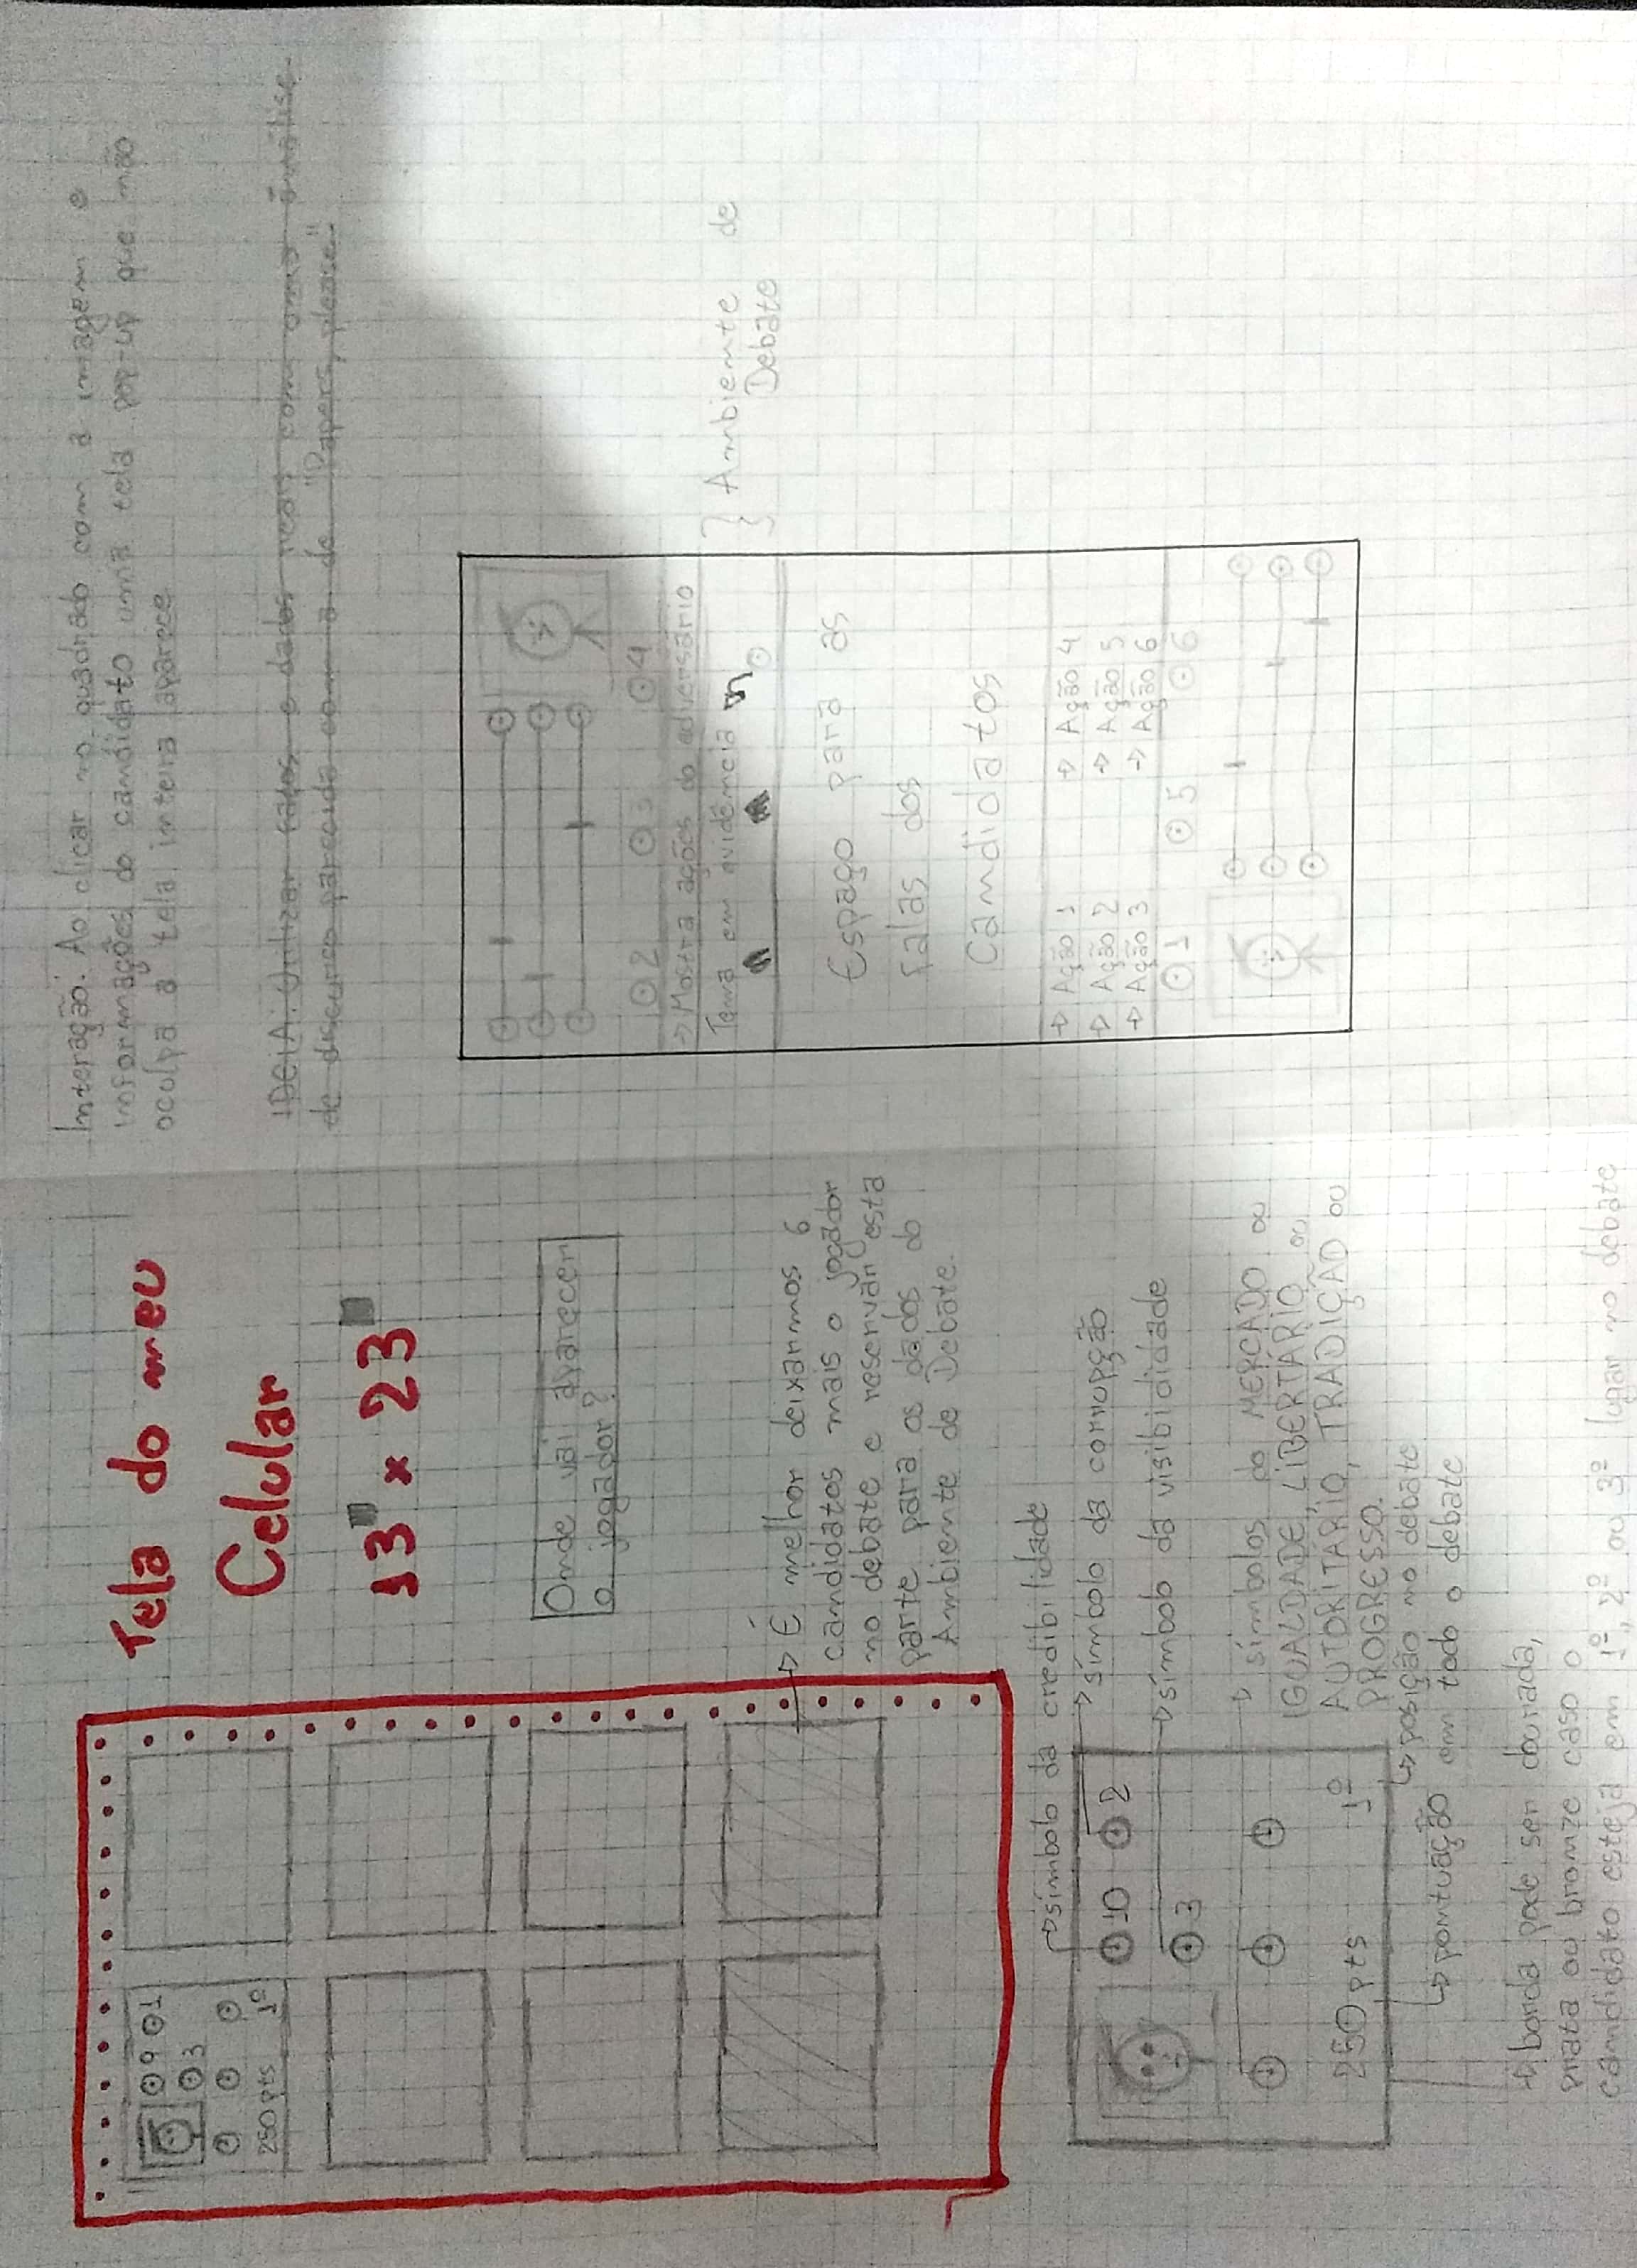 Tela do meu
Celular
13 x 23
9 1
3
250 pts 1º
Onde vai aparecer
o jogador?
→ É melhor deixarmos 6
candidatos mais o jogador
no debate e reservar esta
parte para os dados do
Ambiente de Debate.
→ símbolo da credibilidade
→ símbolo da corrupção
→ símbolo da visibididade
10 2
3
→ símbolos do MERCADO ou
IGUALDADE, LIBERTÁRIO ou
AUTORITÁRIO, TRADIÇÃO ou
PROGRESSO.
250 pts 1º
→ posição no debate
→ pontuação em todo o debate
→ borda pode ser dourada,
prata ou bronze caso o
candidato esteja em 1º, 2º ou 3º lugar no debate
Interação: Ao clicar no quadrado com a imagem e
informações do candidato uma tela pop-up que não
oculpa a tela inteira aparece
IDEIA: Utilizar fatos e dados reais com uma análise
de discurso parecida com a de "Papers, please".
2 3 4
→ Mostra ações do adversário
Tema em evidência
Ambiente de
Debate
Espaço para as
falas dos
candidatos
→ Ação 1 → Ação 4
→ Ação 2 → Ação 5
→ Ação 3 → Ação 6
1 5 6